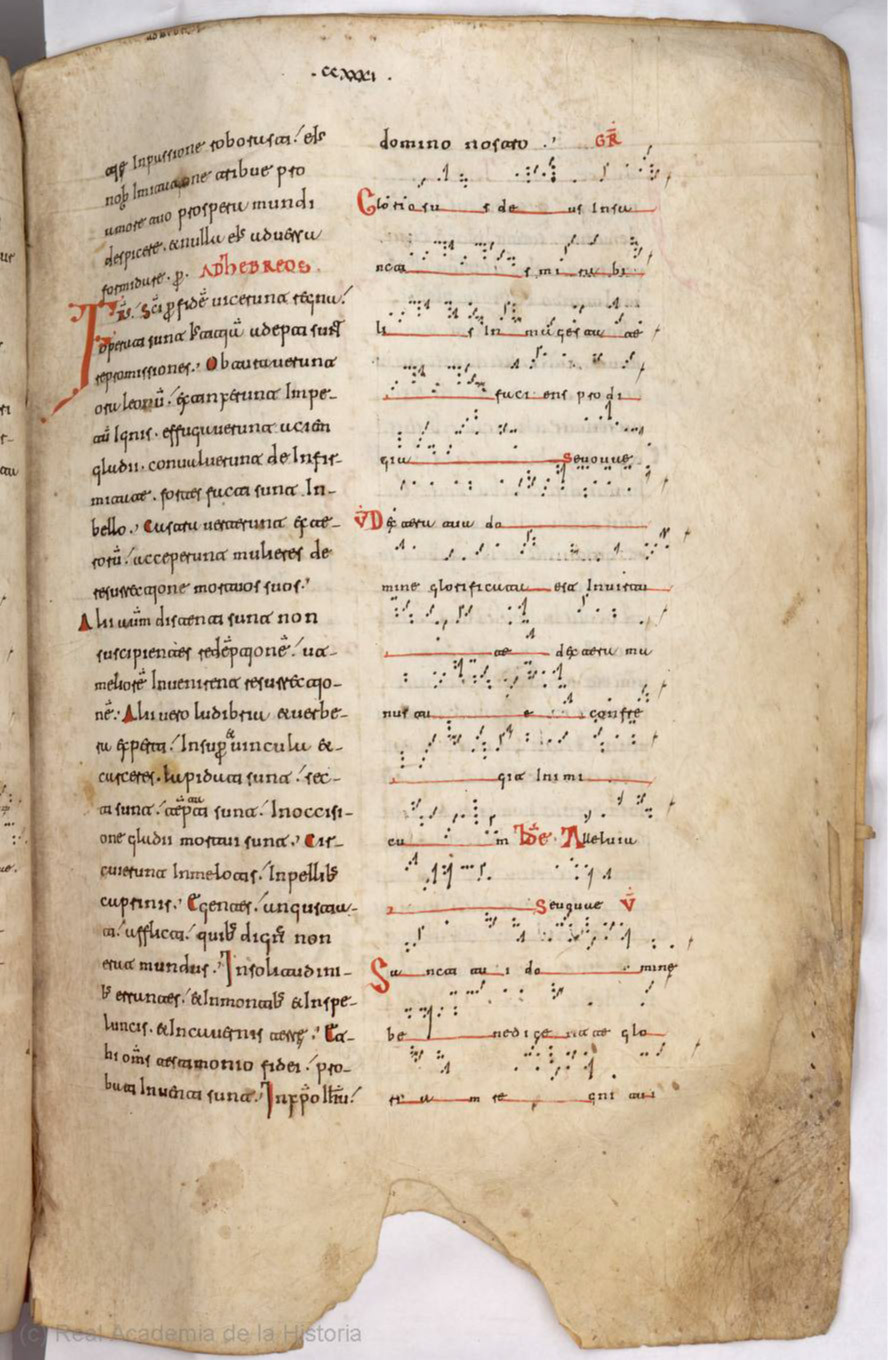 .ccxxxi.
atque In passione roborasti / eis
nobis Imitatione tribue pro
amore tuo prospera mundi
despicere . & nulla eius aduersa
formidare . p . ADhEBREOS
FRS . Sci p fidē uicerunt regna /
operati sunt Iusticiā adepti sunt
repromissiones . Obturauerunt
ora leonū / extinxerunt Impe-
tū Ignis . effugauerunt aciem
gladii . conualuerunt de Infir-
mitate . fortes facti sunt In-
bello . Castra uerterunt exte-
rorū / acceperunt mulieres de
resurrectione mortuos suos .
Alii autem distenti sunt non
suscipientes redēptionē / ut
meliorē Inuenirent resurrectio-
nē . Alii uero ludibria & uerbe-
ra experti / Insup & uincula &
carceres . lapidati sunt / sec-
ti sunt / tēptati sunt / Inoccisi-
one gladii mortui sunt . Cir-
cuierunt Inmelotis / Inpellib
caprinis . Egentes / angustia-
ti / afflicti / quib dign non
erat mundus . Insolitudini-
b errantes / & Inmontib & Inspe-
luncis . & Incauernis terre . Et
hi oms testimonio fidei / pro-
bati Inuenti sunt . Inxpo
domino nostro . GR
Gloriosu s de us Insa
ncti s mi ra bi
li s In ma gestate
faci ens prodi
gia Seuouae
V Dextera tua do
mine glorificata est Inuirtu
te dextera ma
nus tu a confre
git Inimi
cu m Alleluia
Seuouae V
Sa ncti tu i do mine
be nedicent te glo
ri a m re gni tui
(c) Real Academia de la Historia